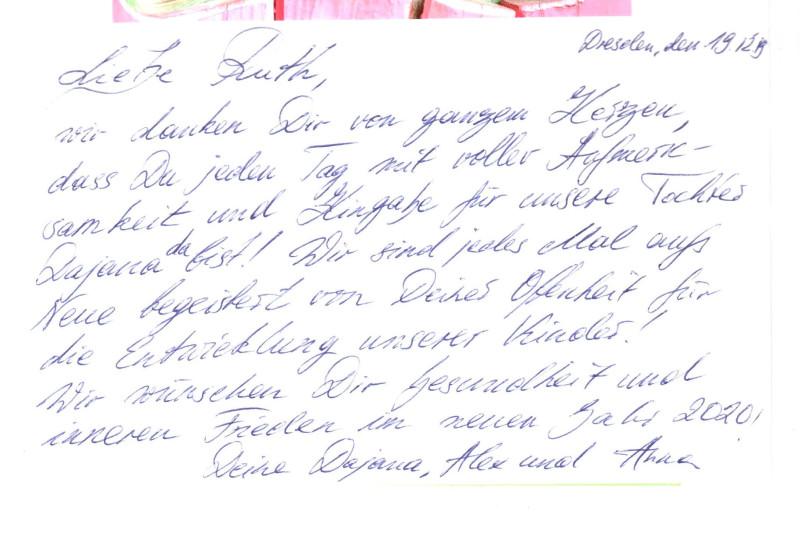 Dresden, den 19.12.19
Liebe Ruth,
wir danken Dir von ganzem Herzen,
dass Du jeden Tag mit voller Aufmerk-
samkeit und Hingabe für unsere Tochter
Dajana da bist! Wir sind jedes Mal aufs
Neue begeistert von Deiner Offenheit für
die Entwicklung unserer Kinder!
Wir wünschen Dir Gesundheit und
inneren Frieden im neuen Jahr 2020!
Deine Dajana, Alex und Anna